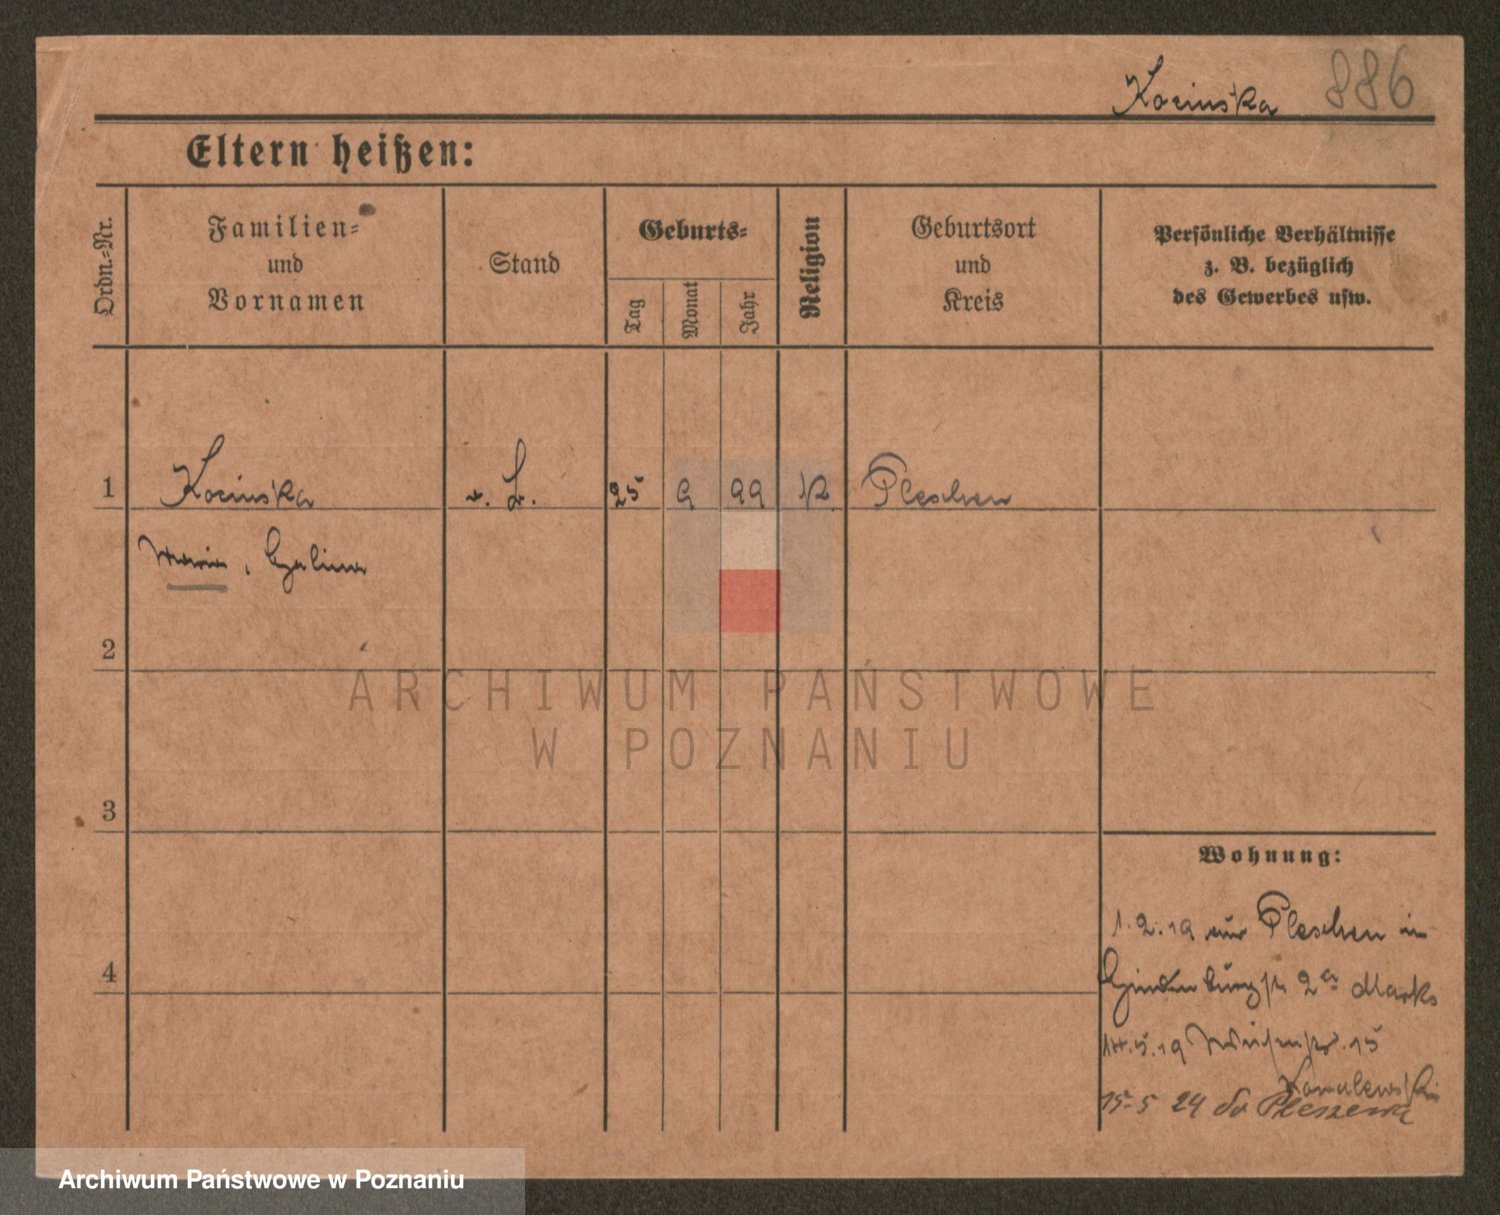 Kocinska 886
Eltern heißen:
Ordn.-Nr.
Familien-
und
Vornamen
Stand
Geburts-
Tag
Monat
Jahr
Religion
Geburtsort
und
Kreis
Persönliche Verhältnisse
z. B. bezüglich
des Gewerbes usw.
1 Kocinska L. 25 9 99 K Pleschen
Maria, Halina
2
ARCHIWUM PAŃSTWOWE
W POZNANIU
3
Wohnung:
1.2.19 aus Pleschen in
4
Hindenburgstr 2a Marks
14.5.19 15
Kowalewski
15-5 24 do Pleszewa
Archiwum Państwowe w Poznaniu